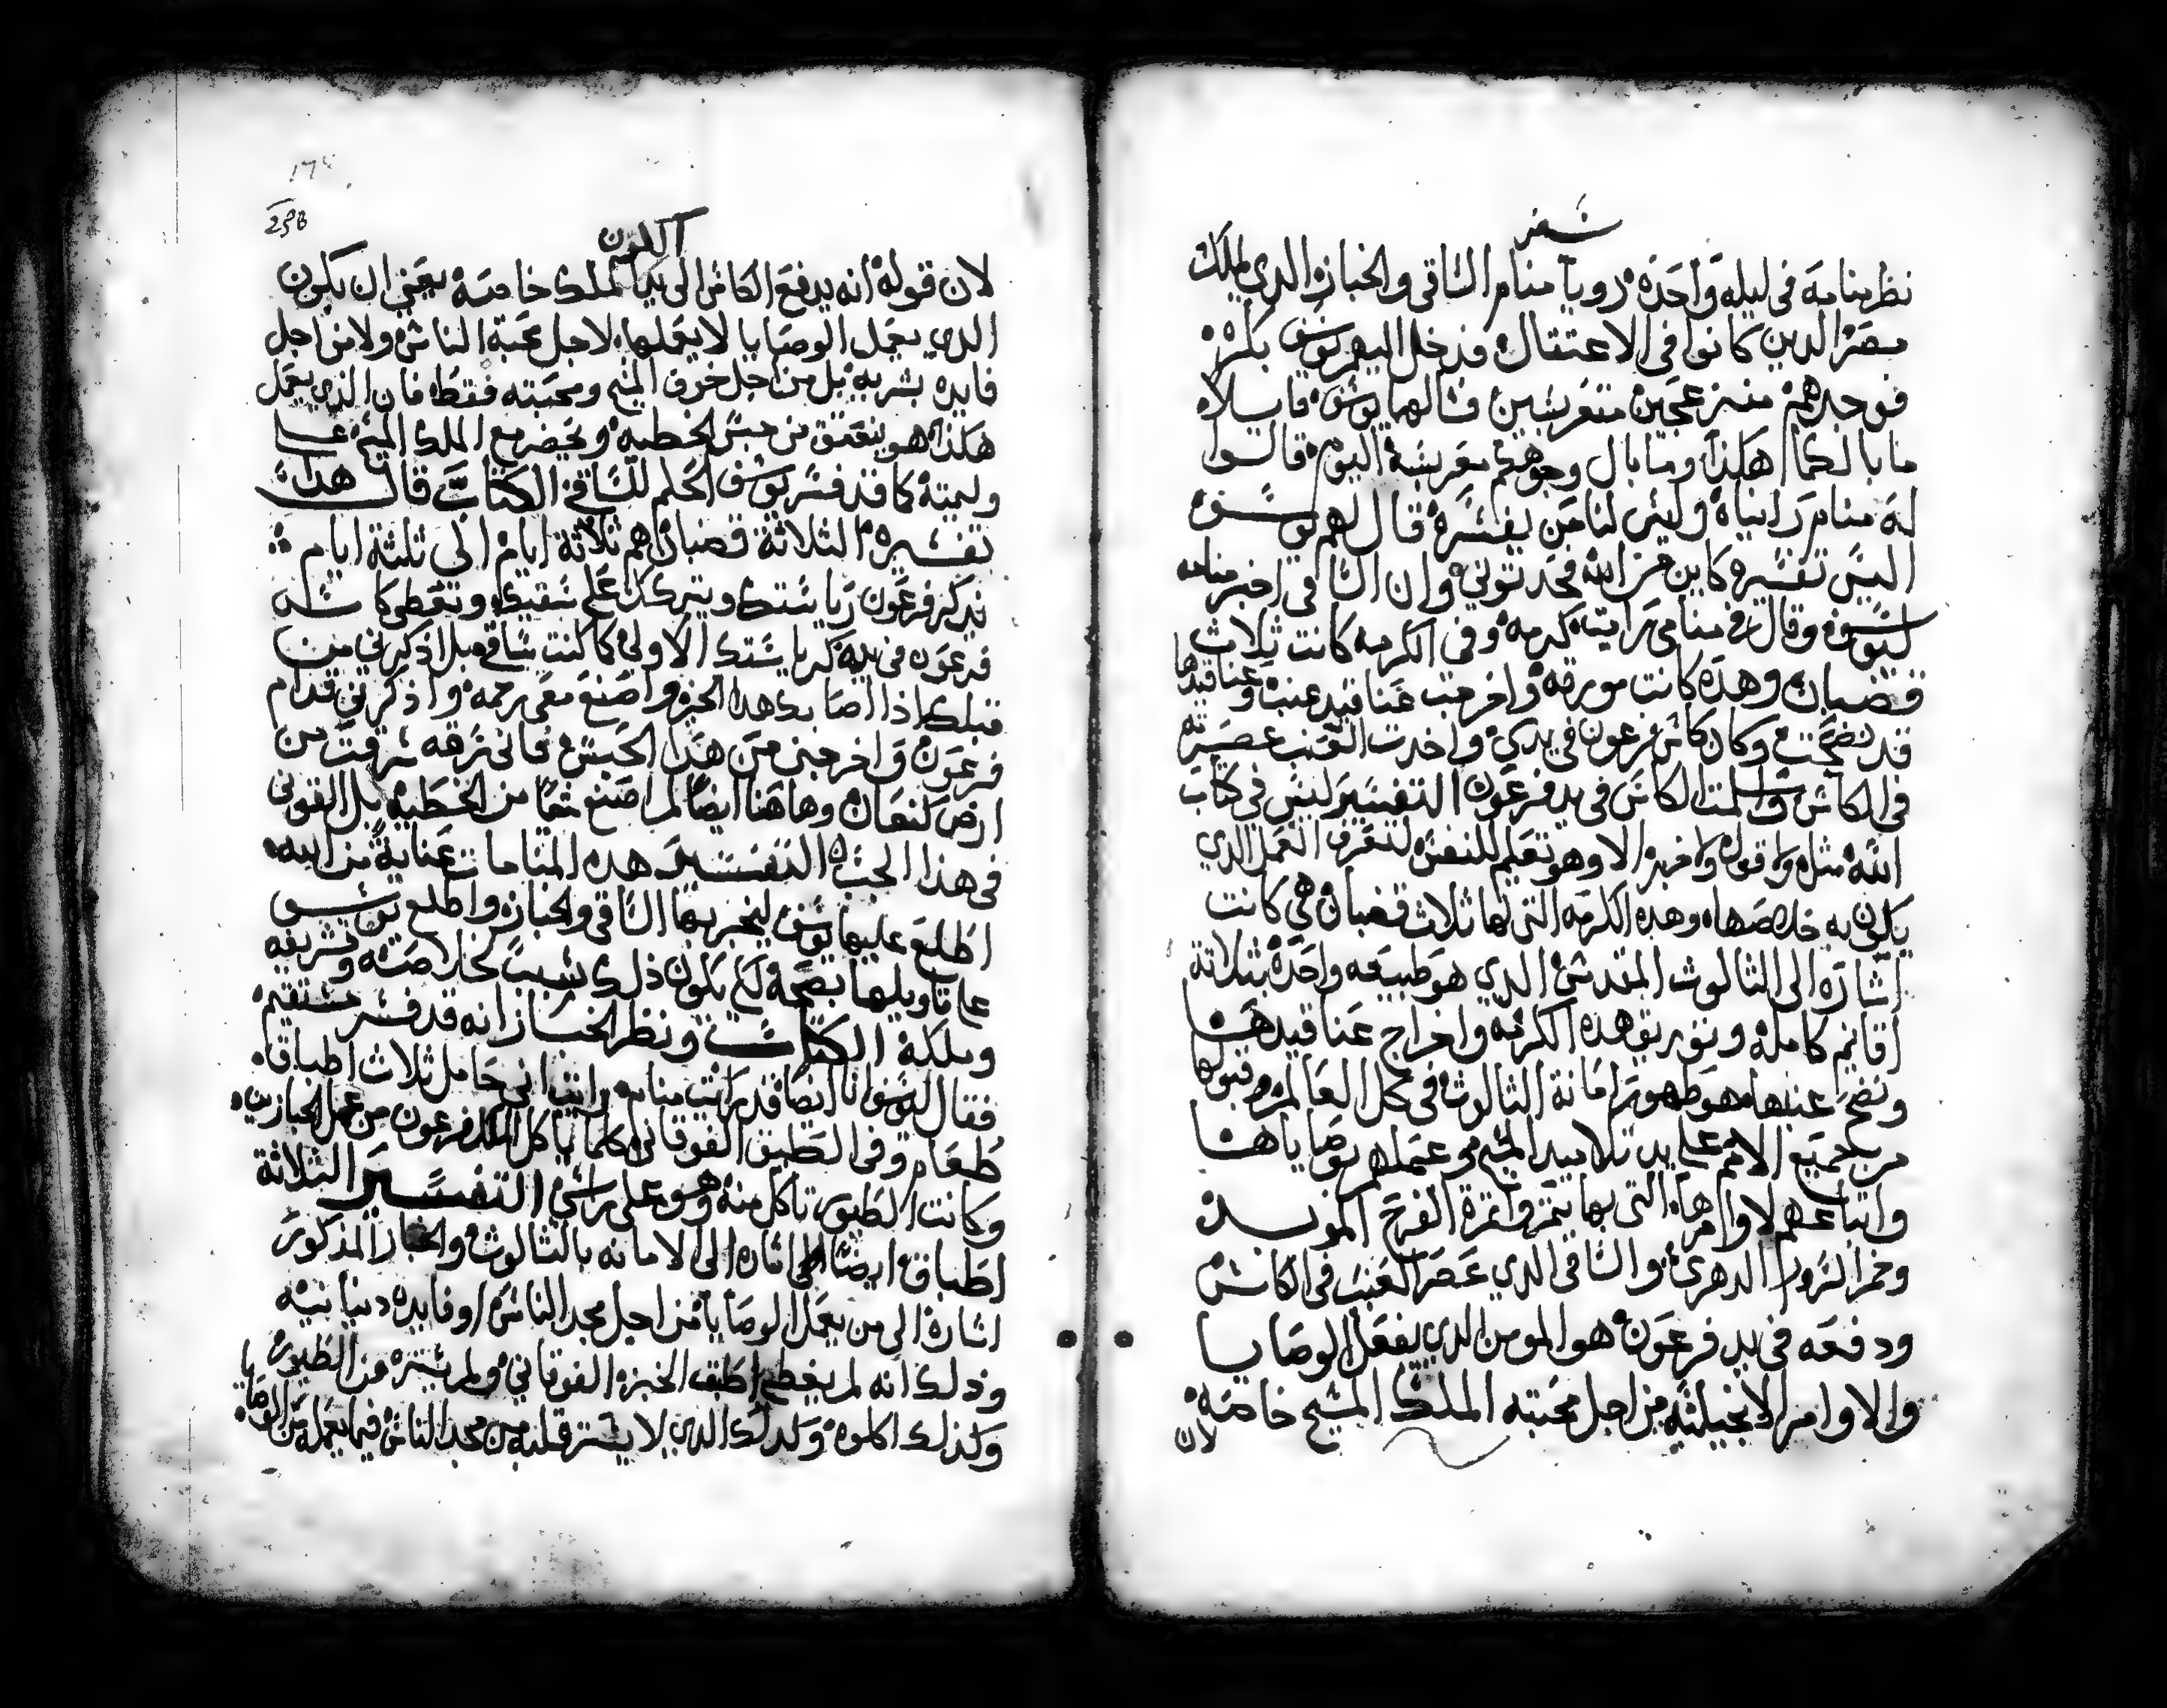 سفر
نظر منامه في ليله واحده رويا منام الساقي والخباز الدي لملك
مصر الدين كانوا في الاعتقال فدخل اليهم يوسف بكره
فوجدهم منزعجين متعربسين فسالهما يوسف قايلا
ما بالكما هكذا وما بال وجوهكم معربسة اليوم قالوا
له منام راناه وليس لنا من يفسره قال لهم يوسف
اليس تفسيره كاين من الله فحدتوني وان الساقي اخبر منامه
ليوسف وقال في منامي رايت كرمه وفي الكرمه كانت ثلاث
قضبان وهده كانت مورقه واخرجت عناقيد عنب وعناقيدها
قد نضجت وكان كاس فرعون في يدي واخدت العنب عصرته
في الكاس وسلمت الكاس في يد فرعون التفسير ليس في كتاب
الله مثله ولا قوله ولا خبره الا وهو تعليم للنفس لتعرف العمل الدي
يكون به خلاصها وهده الكرمه التي لها ثلاث قضبان هي كانت
اشاره الى الثالوث المقدس الدي هو طبيعه واحده بثلاتة
اقانيم كامله وتوريق هده الكرمه واخراج عناقيدها
ونضج عنبها هو ظهور امانة الثالوث في كل العالم وقبولها
من جميع الامم على يد تلاميد المسيح وعملهم بوصاياها
واتباعهم لاوامرها التي بها يتمروا ثمرة الفرح الموبد
وخمر السرور الدهري والساقي الدي عصر العنب في الكاس
ودفعه في يد فرعون هو المومن الدي يفعل الوصايا
والاوامر الانجيلية من اجل محبته الملك المسيح خاصه
لان
238
التكوين
لان قوله انه يدفع الكاس الى يد الملك خاصة يعني ان يكون
الدي يعمل الوصايا لا يعملها لاجل محبة الناس ولا من اجل
فايده بشريه بل من اجل خوف المسيح ومحبته فقط فان الذي يعمل
هكذا هو ينعتق من حبس الخطيه ويحضر مع الملك المسيح على
وليمته كما قد فسر يوسف الحلم للساقي الكتاب قال هدا
تفسيره الثلاثة قضبان هم ثلاثة ايام الى ثلثة ايام
يدكر فرعون رياستك ويتركك على سقيك وتعطي كاس
فرعون في يده كرياستك الاولى كما كنت ساقي بل اذكرني من
قبلك اذا اصابك هدا الخير واصنع معي رحمه واذكرني قدام
فرعون واخرجني من هدا الحبس فاني سرقه سرقت من
ارض كنعان وهاهنا ايضا لم اصنع شيا من الخطيه بل القوني
في هذا الجب التفسير هده المنامات عناية من الله
اطلع عليها يوسف ليخبر بها الساقي والخباز واطلع يوسف
على تاويلها بصحه لكي يكون ذلك سبب لخلاصته وتشريفه
وملكه الكتاب ونظر الخباز انه قد فسر مستقيم
فقال ليوسف انا ايضا قد رايت منامه رايت اني حامل ثلاث اطباق
طعام وفي الطبق الفوقاني كلما ياكل الملك فرعون من عمل الخبازين
وكانت الطيور تاكل منه وهو على راسي التفسير الثلاثة
اطباق ايضا اشاره الى الامانه بالثالوث والخباز المذكور
اشارة الى من يعمل الوصايا من اجل مجد الناس او فايده دنيانيه
وذلك انه لم يغطي طبق الخبزه الفوقاني ولم يستره من الطيور
وكذلك اكلوه وكدلك الدي لا يستر قلبه من مجد الناس فيما يعمله من الوصايا